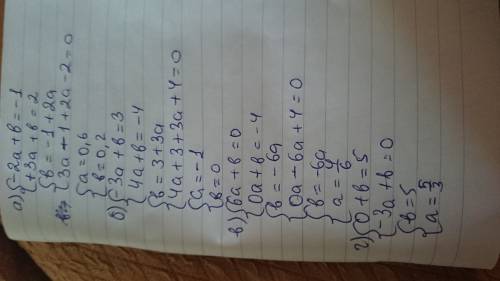 а) {-2a+b=-1
{+3a+b=2
{b=-1+2a
{3a-1+2a-2=0
{a=0,6
{b=0,2
б) {-3a+b=3
{4a+b=-4
{b=3+3a
{4a+3+3a+4=0
{a=-1
{b=0
в) {6a+b=0
{0a+b=-4
{b=-6a
{0a-6a+4=0
{b=-6a
{a=4/6
г) {0+b=5
{-3a+b=0
{b=5
{a=5/3